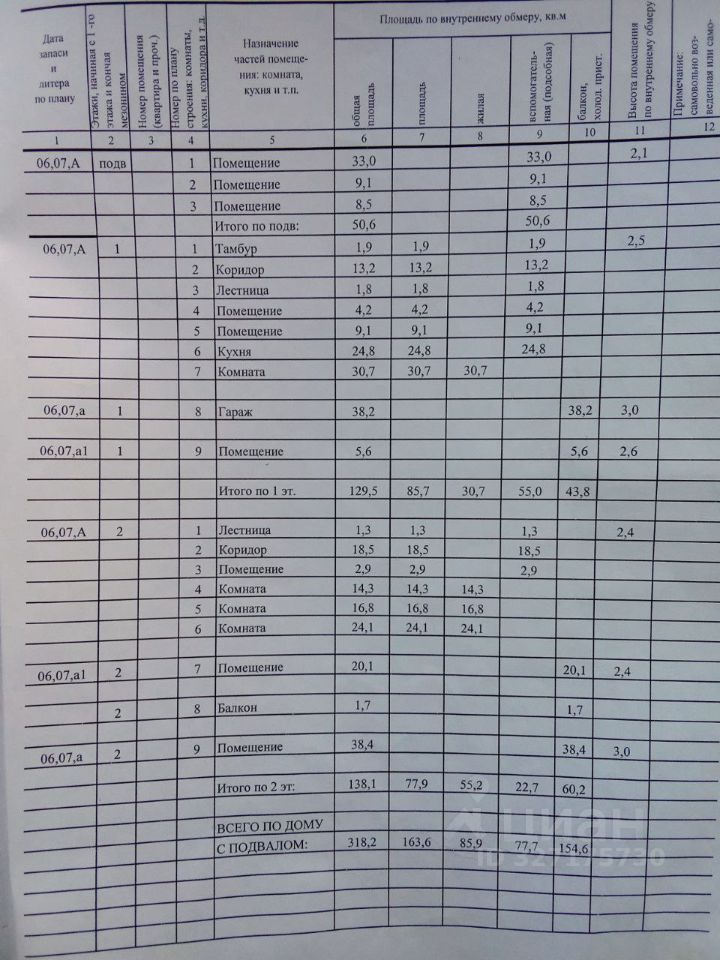 Дата записи и литера по плану | Этажи, начиная с 1-го этажа и кончая мезонином | Номер помещения (квартира и проч.) | Номер по плану строения: комнаты, кухни, коридора и т.д. | Назначение частей помеще-ния: комната, кухня и т.п. | Площадь по внутреннему обмеру, кв.м | Высота помещения по внутреннему обмеру | Примечание: самовольно воз-веденная или само-
общая площадь | площадь | жилая | вспомогатель-ная (подсобная) | балкон, холод. прист.
1 2 3 4 5 6 7 8 9 10 11 12
06,07,А подв 1 Помещение 33,0 33,0 2,1
2 Помещение 9,1 9,1
3 Помещение 8,5 8,5
Итого по подв: 50,6 50,6
06,07,А 1 1 Тамбур 1,9 1,9 1,9 2,5
2 Коридор 13,2 13,2 13,2
3 Лестница 1,8 1,8 1,8
4 Помещение 4,2 4,2 4,2
5 Помещение 9,1 9,1 9,1
6 Кухня 24,8 24,8 24,8
7 Комната 30,7 30,7 30,7
06,07,а 1 8 Гараж 38,2 38,2 3,0
06,07,а1 1 9 Помещение 5,6 5,6 2,6
Итого по 1 эт. 129,5 85,7 30,7 55,0 43,8
06,07,А 2 1 Лестница 1,3 1,3 1,3 2,4
2 Коридор 18,5 18,5 18,5
3 Помещение 2,9 2,9 2,9
4 Комната 14,3 14,3 14,3
5 Комната 16,8 16,8 16,8
6 Комната 24,1 24,1 24,1
06,07,а1 2 7 Помещение 20,1 20,1 2,4
2 8 Балкон 1,7 1,7
06,07,а 2 9 Помещение 38,4 38,4 3,0
Итого по 2 эт: 138,1 77,9 55,2 22,7 60,2
ВСЕГО ПО ДОМУ
С ПОДВАЛОМ: 318,2 163,6 85,9 77,7 154,6
циан
ID 327175730